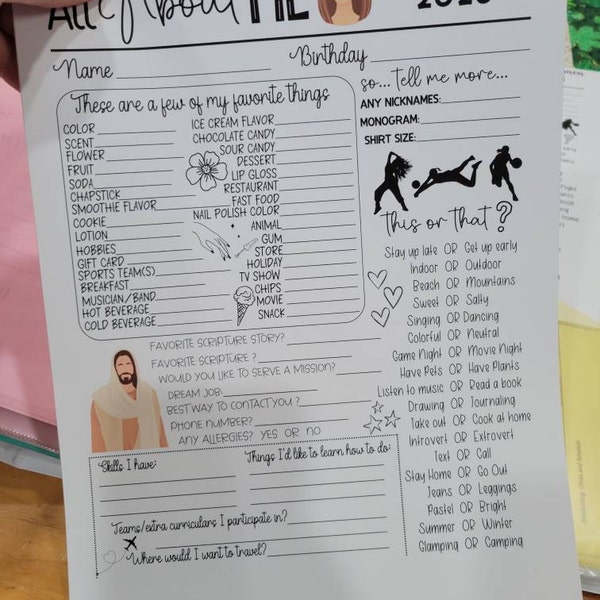 All About ME
Name
Birthday
These are a few of my favorite things
COLOR
SCENT
FLOWER
FRUIT
SODA
CHAPSTICK
SMOOTHIE FLAVOR
COOKIE
LOTION
HOBBIES
GIFT CARD
SPORTS TEAM(S)
BREAKFAST
MUSICIAN/BAND
HOT BEVERAGE
COLD BEVERAGE
ICE CREAM FLAVOR
CHOCOLATE CANDY
SOUR CANDY
DESSERT
LIP GLOSS
RESTAURANT
FAST FOOD
NAIL POLISH COLOR
ANIMAL
GUM
STORE
HOLIDAY
TV SHOW
CHIPS
MOVIE
SNACK
so... tell me more...
ANY NICKNAMES:
MONOGRAM:
SHIRT SIZE:
this or that?
Stay up late OR Get up early
Indoor OR Outdoor
Beach OR Mountains
Sweet OR Salty
Singing OR Dancing
Colorful OR Neutral
Game Night OR Movie Night
Have Pets OR Have Plants
Listen to music OR Read a book
Drawing OR Journaling
Take out OR Cook at home
Introvert OR Extrovert
Text OR Call
Stay Home OR Go Out
Jeans OR Leggings
Pastel OR Bright
Summer OR Winter
Glamping OR Camping
FAVORITE SCRIPTURE STORY?
FAVORITE SCRIPTURE ?
WOULD YOU LIKE TO SERVE A MISSION?
DREAM JOB:
BEST WAY TO CONTACT YOU ?
PHONE NUMBER?
ANY ALLERGIES? YES OR NO
Skills I have:
Things I'd like to learn how to do:
Teams/extra curriculars I participate in?
Where would I want to travel?